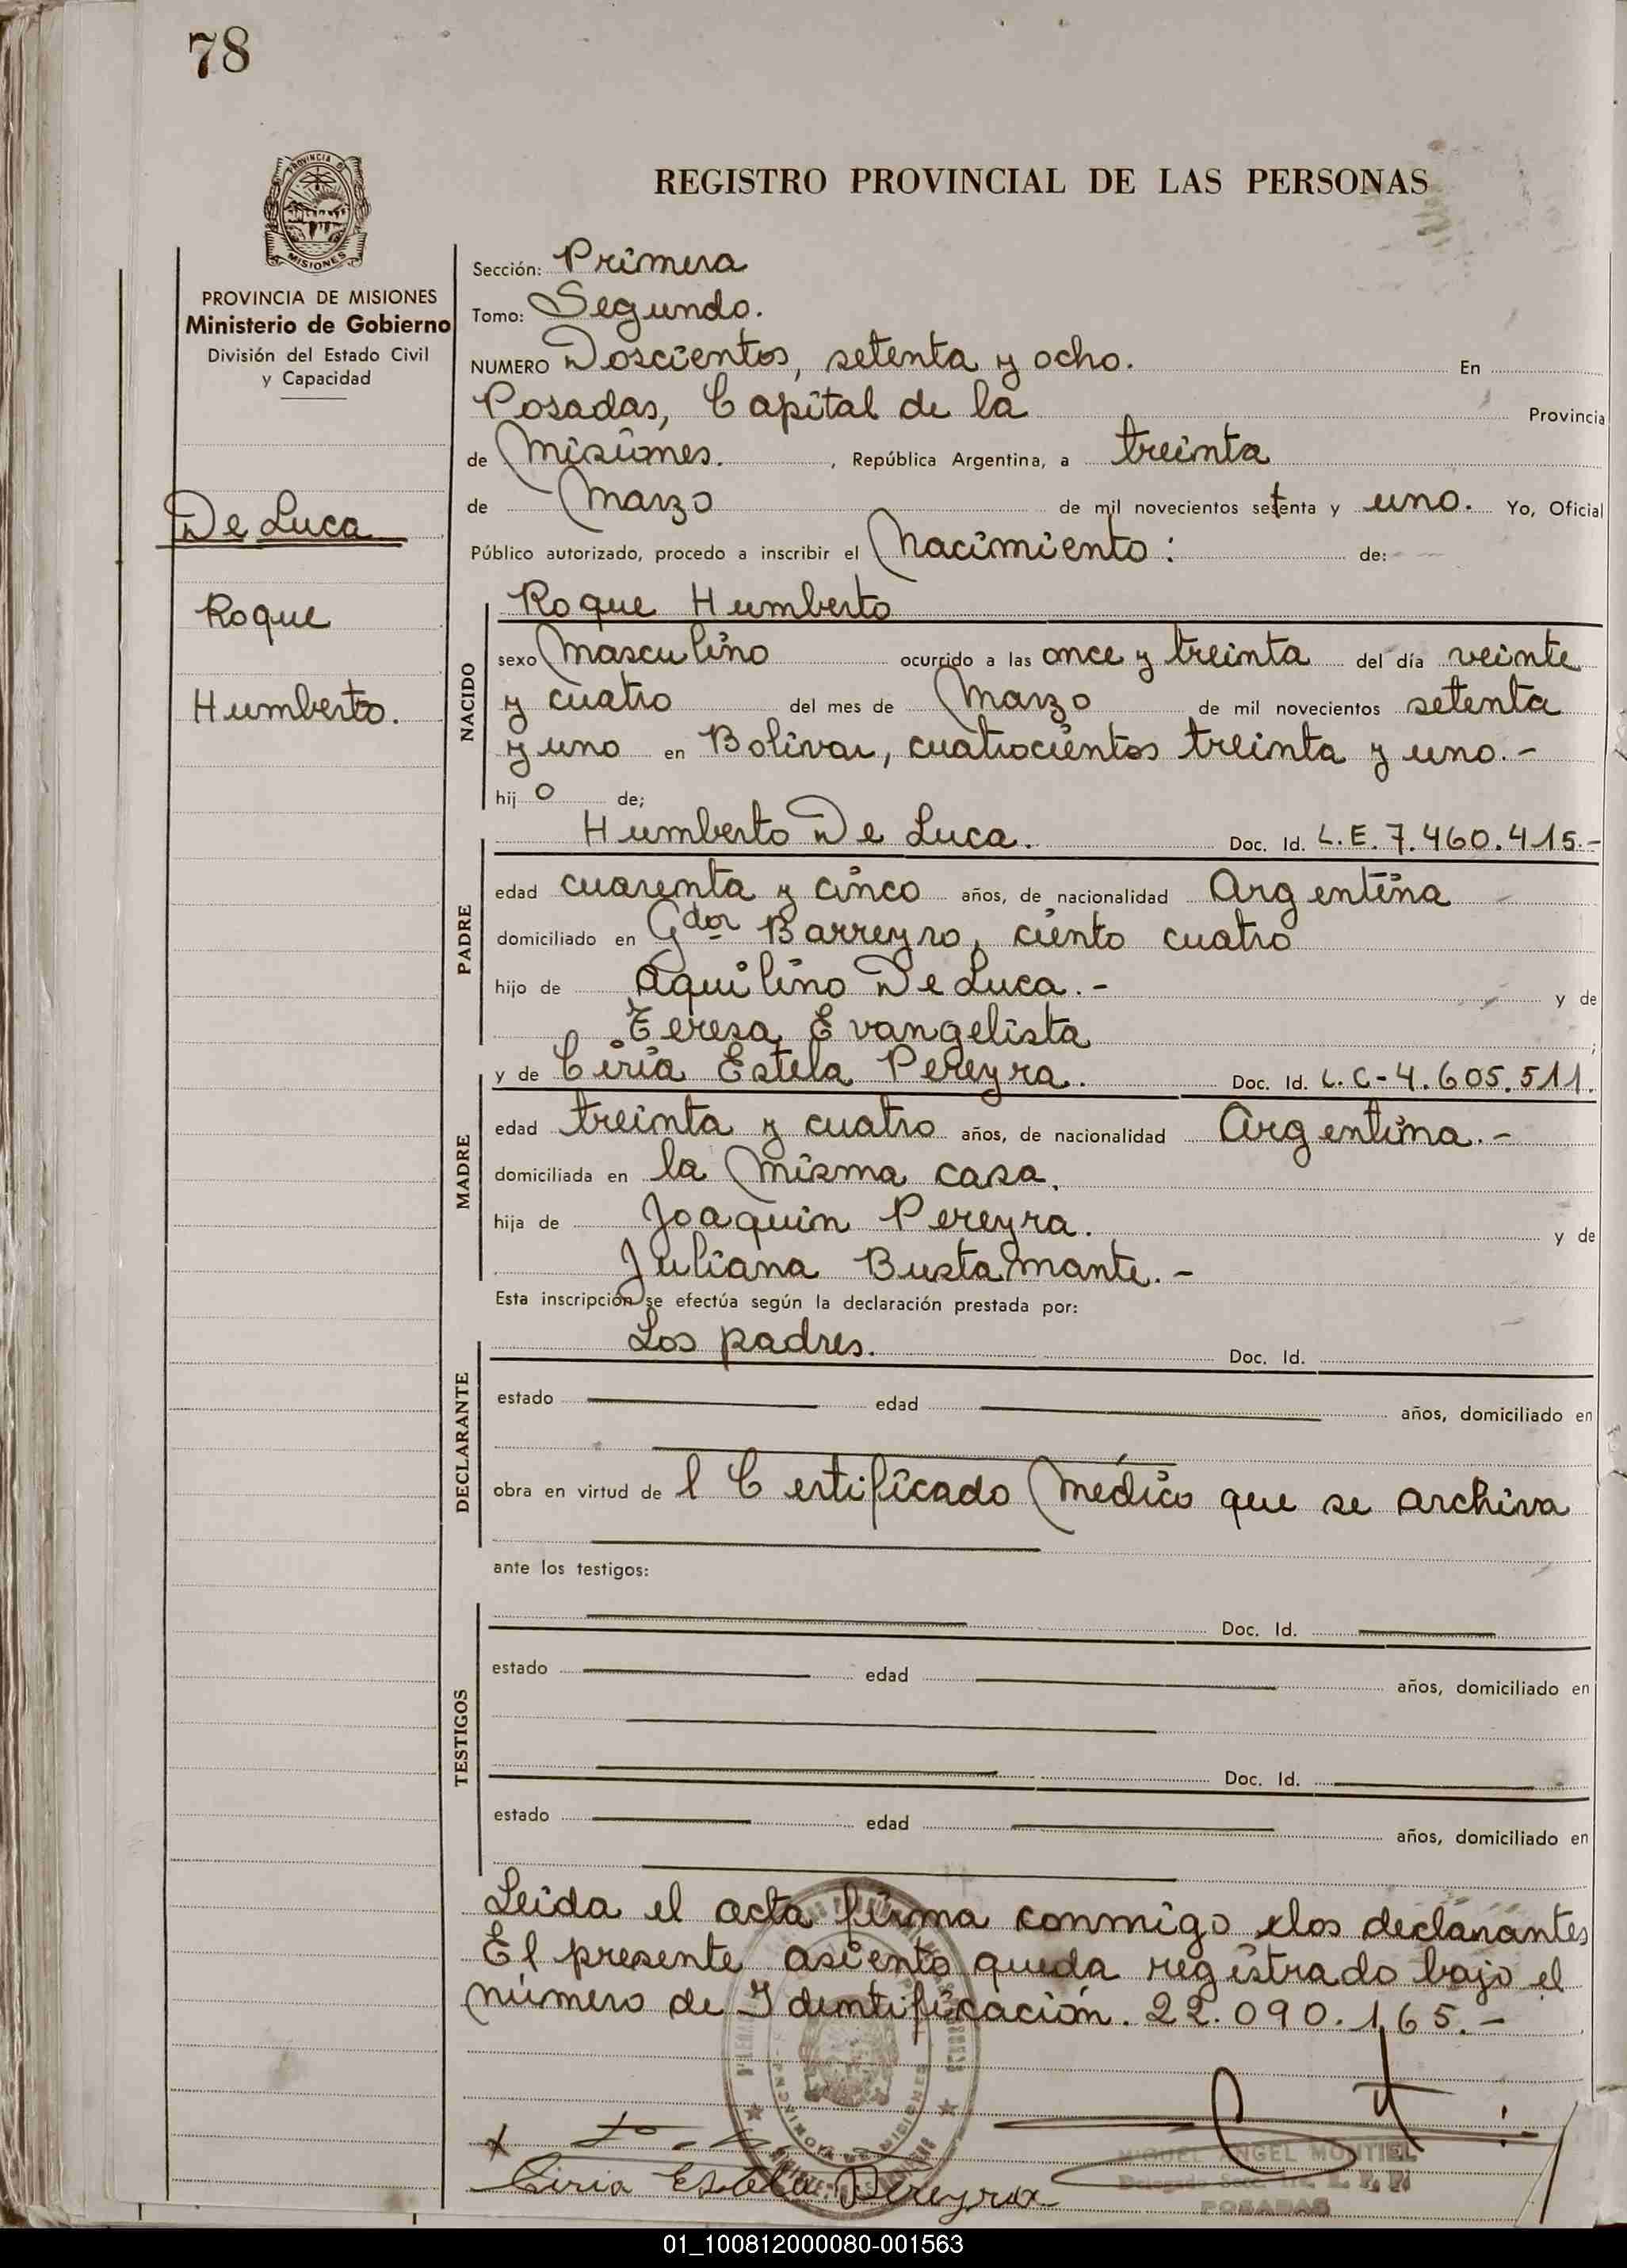 78
PROVINCIA DE
MISIONES
PROVINCIA DE MISIONES
Ministerio de Gobierno
División del Estado Civil
y Capacidad
De Luca
Roque
Humberto.
REGISTRO PROVINCIAL DE LAS PERSONAS
Sección: Primera
Tomo: Segundo.
NUMERO Doscientos, setenta y ocho. En
Posadas, Capital de la Provincia
de Misiones. , República Argentina, a treinta
de Marzo de mil novecientos setenta y uno. Yo, Oficial
Público autorizado, procedo a inscribir el Nacimiento: de:
Roque Humberto
NACIDO
sexo Masculino ocurrido a las once y treinta del día veinte
y cuatro del mes de Marzo de mil novecientos setenta
y uno en Bolivar, cuatrocientos treinta y uno.-
hij o de;
Humberto De Luca. Doc. Id. L.E. 7.460.415.-
PADRE
edad cuarenta y cinco años, de nacionalidad Argentina
domiciliado en Gdor Barreyro, ciento cuatro
hijo de Aquilino De Luca.- y de
Teresa Evangelista ;
y de Ciria Estela Pereyra. Doc. Id. L.C-4.605.511.
MADRE
edad treinta y cuatro años, de nacionalidad Argentina.-
domiciliada en la misma casa.
hija de Joaquin Pereyra. y de
Juliana Bustamante.-
Esta inscripción se efectúa según la declaración prestada por:
Los padres. Doc. Id.
DECLARANTE
estado edad años, domiciliado en
obra en virtud de l Certificado Médico que se archiva
ante los testigos:
Doc. Id.
TESTIGOS
estado edad años, domiciliado en
Doc. Id.
estado edad años, domiciliado en
Leida el acta firma conmigo los declarantes
El presente asiento queda registrado bajo el
número de Identificación. 22.090.165.-
MIGUEL ANGEL MONTIEL
Delegado
POSADAS
Ciria Estela Pereyra
01_100812000080-001563